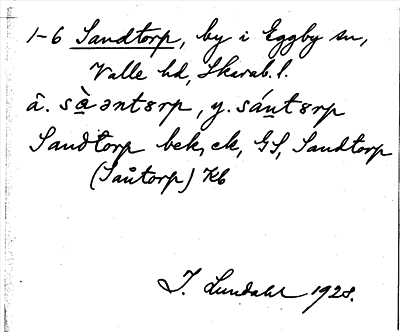 1-6 Sandtorp, by i Eggby sn,
Valle hd, Skarab. l.
â. sàəntɘrp, y. sántɘrp
Sandtorp bek, ek, GS, Sandtorp
(Santorp) Kb
I. Lundahl 1928.